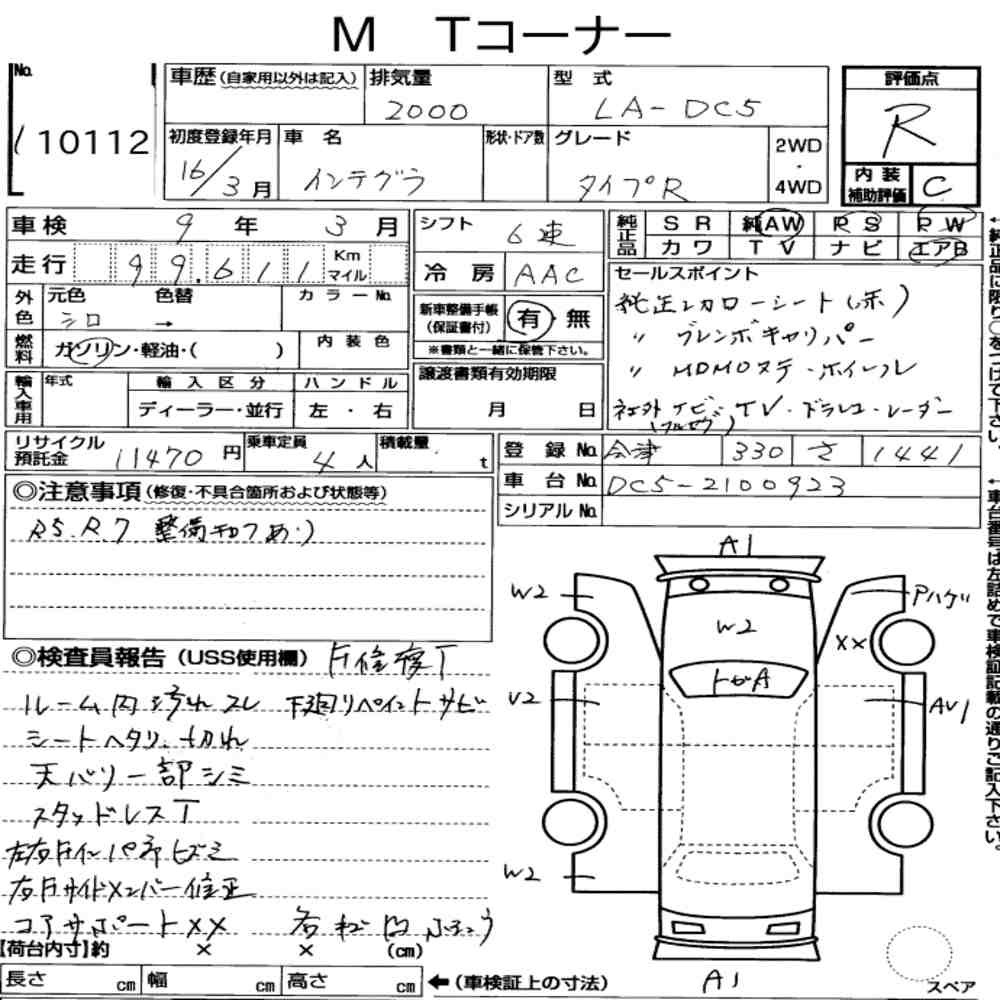 M Tコーナー
No. 110112
車歴(自家用以外は記入) 排気量 2000 型式 LA-DC5
初度登録年月 16/3月 車名 インテグラ 形状・ドア数 グレード タイプR 2WD・4WD
評価点 R
内装補助評価 C
車検 9年 3月
走行 99,611 Km マイル
外色 元色 シロ 色替 → カラーNo.
燃料 ガソリン・軽油・( ) 内装色
輸入車用 年式 輸入区分 ディーラー・並行 ハンドル 左・右
シフト 6速
冷房 AAC
新車整備手帳(保証書付) 有・無
※書類と一緒に保管下さい。
譲渡書類有効期限 月 日
純正品 SR 純AW RS PW
カワ TV ナビ エアB
セールスポイント
純正レカローシート(赤)
〃 ブレンボキャリパー
〃 MOMOステ・ホイール
社外ナビ・TV・ドラレコ・レーダー
(フルセグ)
←純正品に限り○をつけて下さい。
リサイクル預託金 11470円 乗車定員 4人 積載量 t
登録No. 会津 330 さ 1441
車台No. DC5-2100923
シリアルNo.
←車台番号は左詰めで車検証記載の通りご記入下さい。
◎注意事項(修復・不具合箇所および状態等)
R5.R.7 整備手帳あり
◎検査員報告(USS使用欄) F修復T
ルーム内汚れスレ 下廻リペイントサビ
シートヘタリ、切れ
天バリ一部シミ
スタッドレスT
左右Fインパネヒズミ
右Fサイドメンバー修正
コアサポートXX
A1
W2
W2
Pハゲ
XX
トビA
V2
AV1
W2
A1
スペア
【荷台内寸】約 × × (cm)
長さ cm 幅 cm 高さ cm ←(車検証上の寸法)